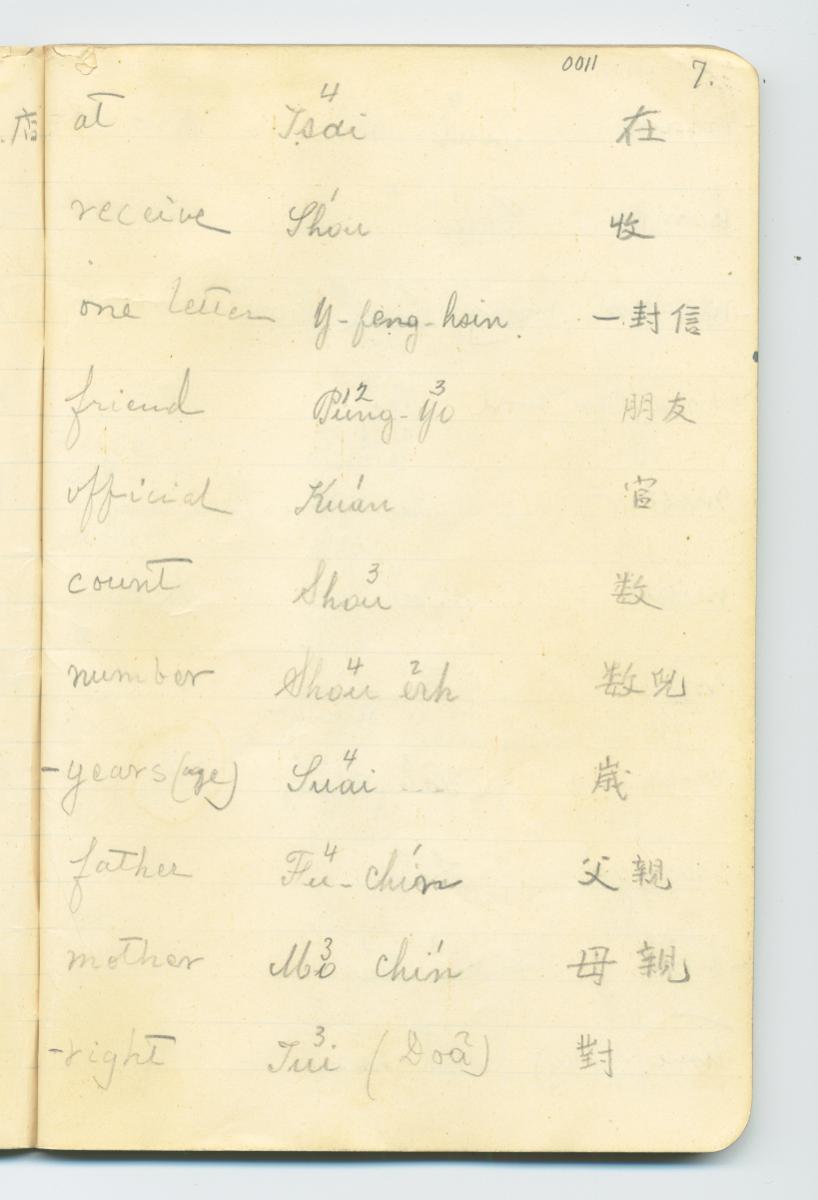 0011 7.
at Tsai⁴ 在
receive Shou¹ 收
one letter y-feng-hsin. 一封信
friend Pung¹²-yo³ 朋友
official Kuan¹ 官
count Shou³ 数
number Shou⁴ erh² 数兒
-years (age) Suai⁴ ... 歳
father Fu⁴-chin¹ 父親
mother Mo³ chin¹ 母親
-right Tui³ 對
店